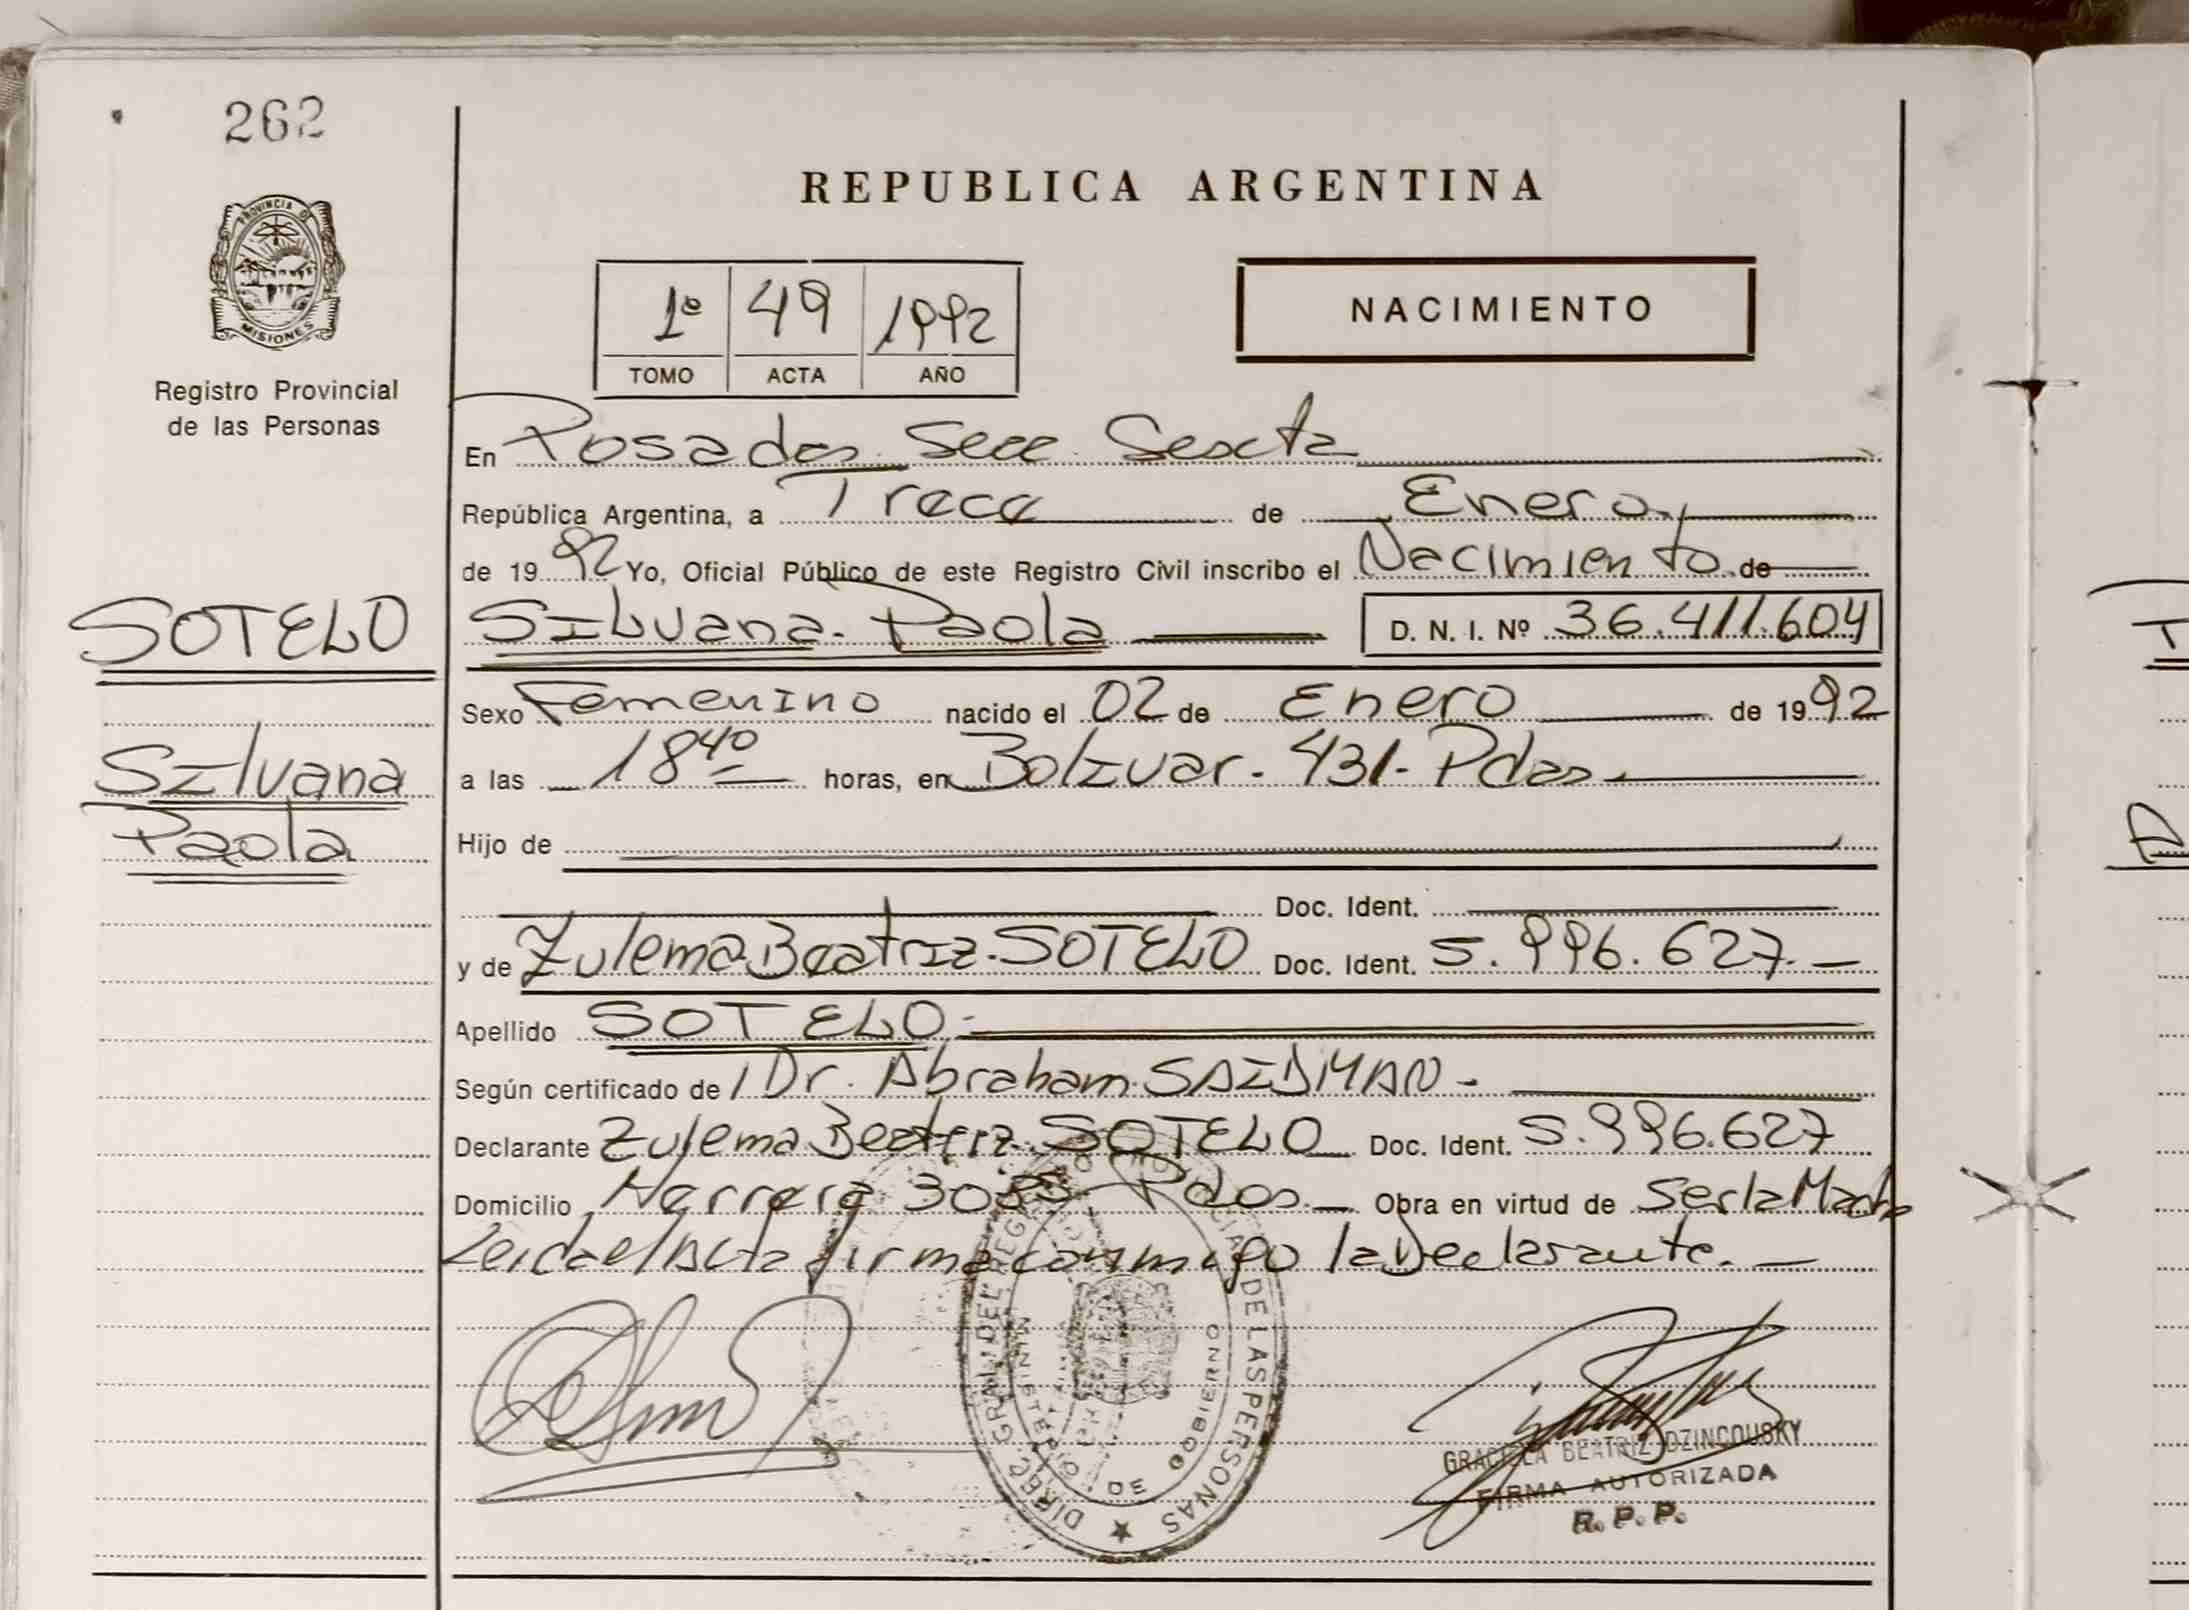 262
PROVINCIA D
MISIONES
Registro Provincial
de las Personas
SOTELO
Silvana
Paola
REPUBLICA ARGENTINA
1º 49 1992
TOMO ACTA AÑO
NACIMIENTO
En Posadas Secc. Sexta
República Argentina, a Trece de Enero,
de 1992 Yo, Oficial Público de este Registro Civil inscribo el Nacimiento de
Silvana Paola D. N. I. Nº 36.411.604
Sexo Femenino nacido el 02 de Enero de 1992
a las 18 40 horas, en Bolivar. 431. Pdas
Hijo de
Doc. Ident.
y de Zulema Beatriz. SOTELO Doc. Ident. 5.996.627.
Apellido SOTELO.
Según certificado de Dr. Abraham SAIDMAN
Declarante Zulema Beatriz SOTELO Doc. Ident. 5.996.627
Domicilio Herrera Pdas. Obra en virtud de ser la Madre
Leida el Acta firma conmigo la Declarante.
DIREC. GRAL. DEL REG. PROVINCIAL DE LAS PERSONAS
DE GOBIERNO
GRACIELA BEATRIZ DZINCOUSKY
FIRMA AUTORIZADA
R. P. P.